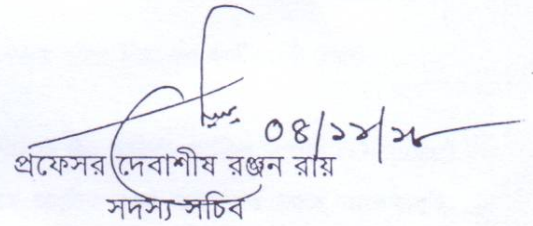 ০৪/১২/১৮
প্রফেসর দেবাশীষ রঞ্জন রায়
সদস্য সচিব